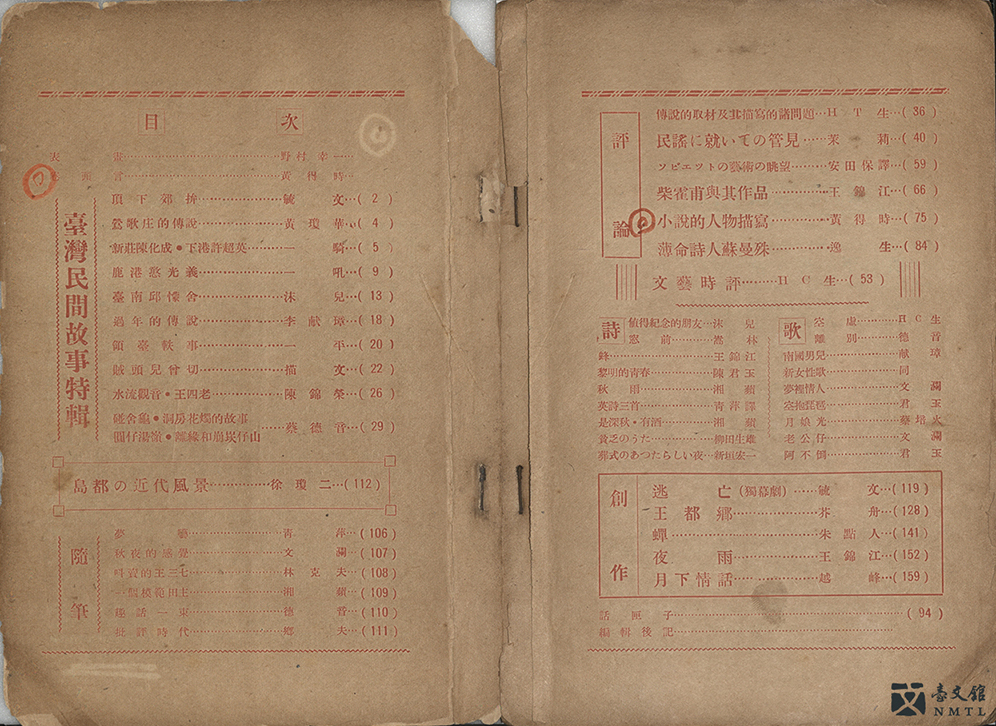 目次
表畫 野村幸一
言 黃得時
臺灣民間故事特輯
頂下郊拚 毓文 (2)
鶯歌庄的傳說 黃瓊華 (4)
新莊陳化成・下港許超英 一騎 (5)
鹿港憨光義 一吼 (9)
臺南邱懞舍 沫兒 (13)
過年的傳說 李献璋 (18)
領臺軼事 一平 (20)
賊頭兒曾切 描文 (22)
水流觀音・王四老 陳錦榮 (26)
碰舍龜・洞房花燭的故事
圓仔湯嶺・離緣和崩崁仔山 蔡德音 (29)
島都の近代風景 徐瓊二 (112)
隨筆
夢 青萍 (106)
秋夜的感覺 文瀾 (107)
叫賣的王三七 林克夫 (108)
一個模範田主 湘蘋 (109)
話一束 德音 (110)
批評時代 鄉夫 (111)
評論
傳說的取材及其描寫的諸問題 HT生 (36)
民謠に就いての管見 茉莉 (40)
ソビエツトの藝術の眺望 安田保譯 (59)
柴霍甫與其作品 王錦江 (66)
小說的人物描寫 黃得時 (75)
薄命詩人蘇曼殊 逸生 (84)
文藝時評 HC生 (53)
詩
值得紀念的朋友 沫兒
窓前 嵩林
鋒 王錦江
黎明的青春 陳君玉
秋雨 湘蘋
英詩三首 青萍譯
是深秋・有酒 湘蘋
貧乏のうた 柳田生雄
葬式のあつたらしい夜 新垣宏一
歌
空虛 HC生
離別 德音
南國男兒 献璋
新女性歌 同
夢裡情人 文瀾
空抱琵琶 君玉
月娘光 蔡培火
老公仔 文瀾
阿不倒 君玉
創作
逃亡(獨幕劇) 毓文 (119)
王都鄉 芥舟 (128)
蟬 朱點人 (141)
夜雨 王錦江 (152)
月下情話 越峰 (159)
話匣子 (94)
編輯後記
臺文館
NMTL